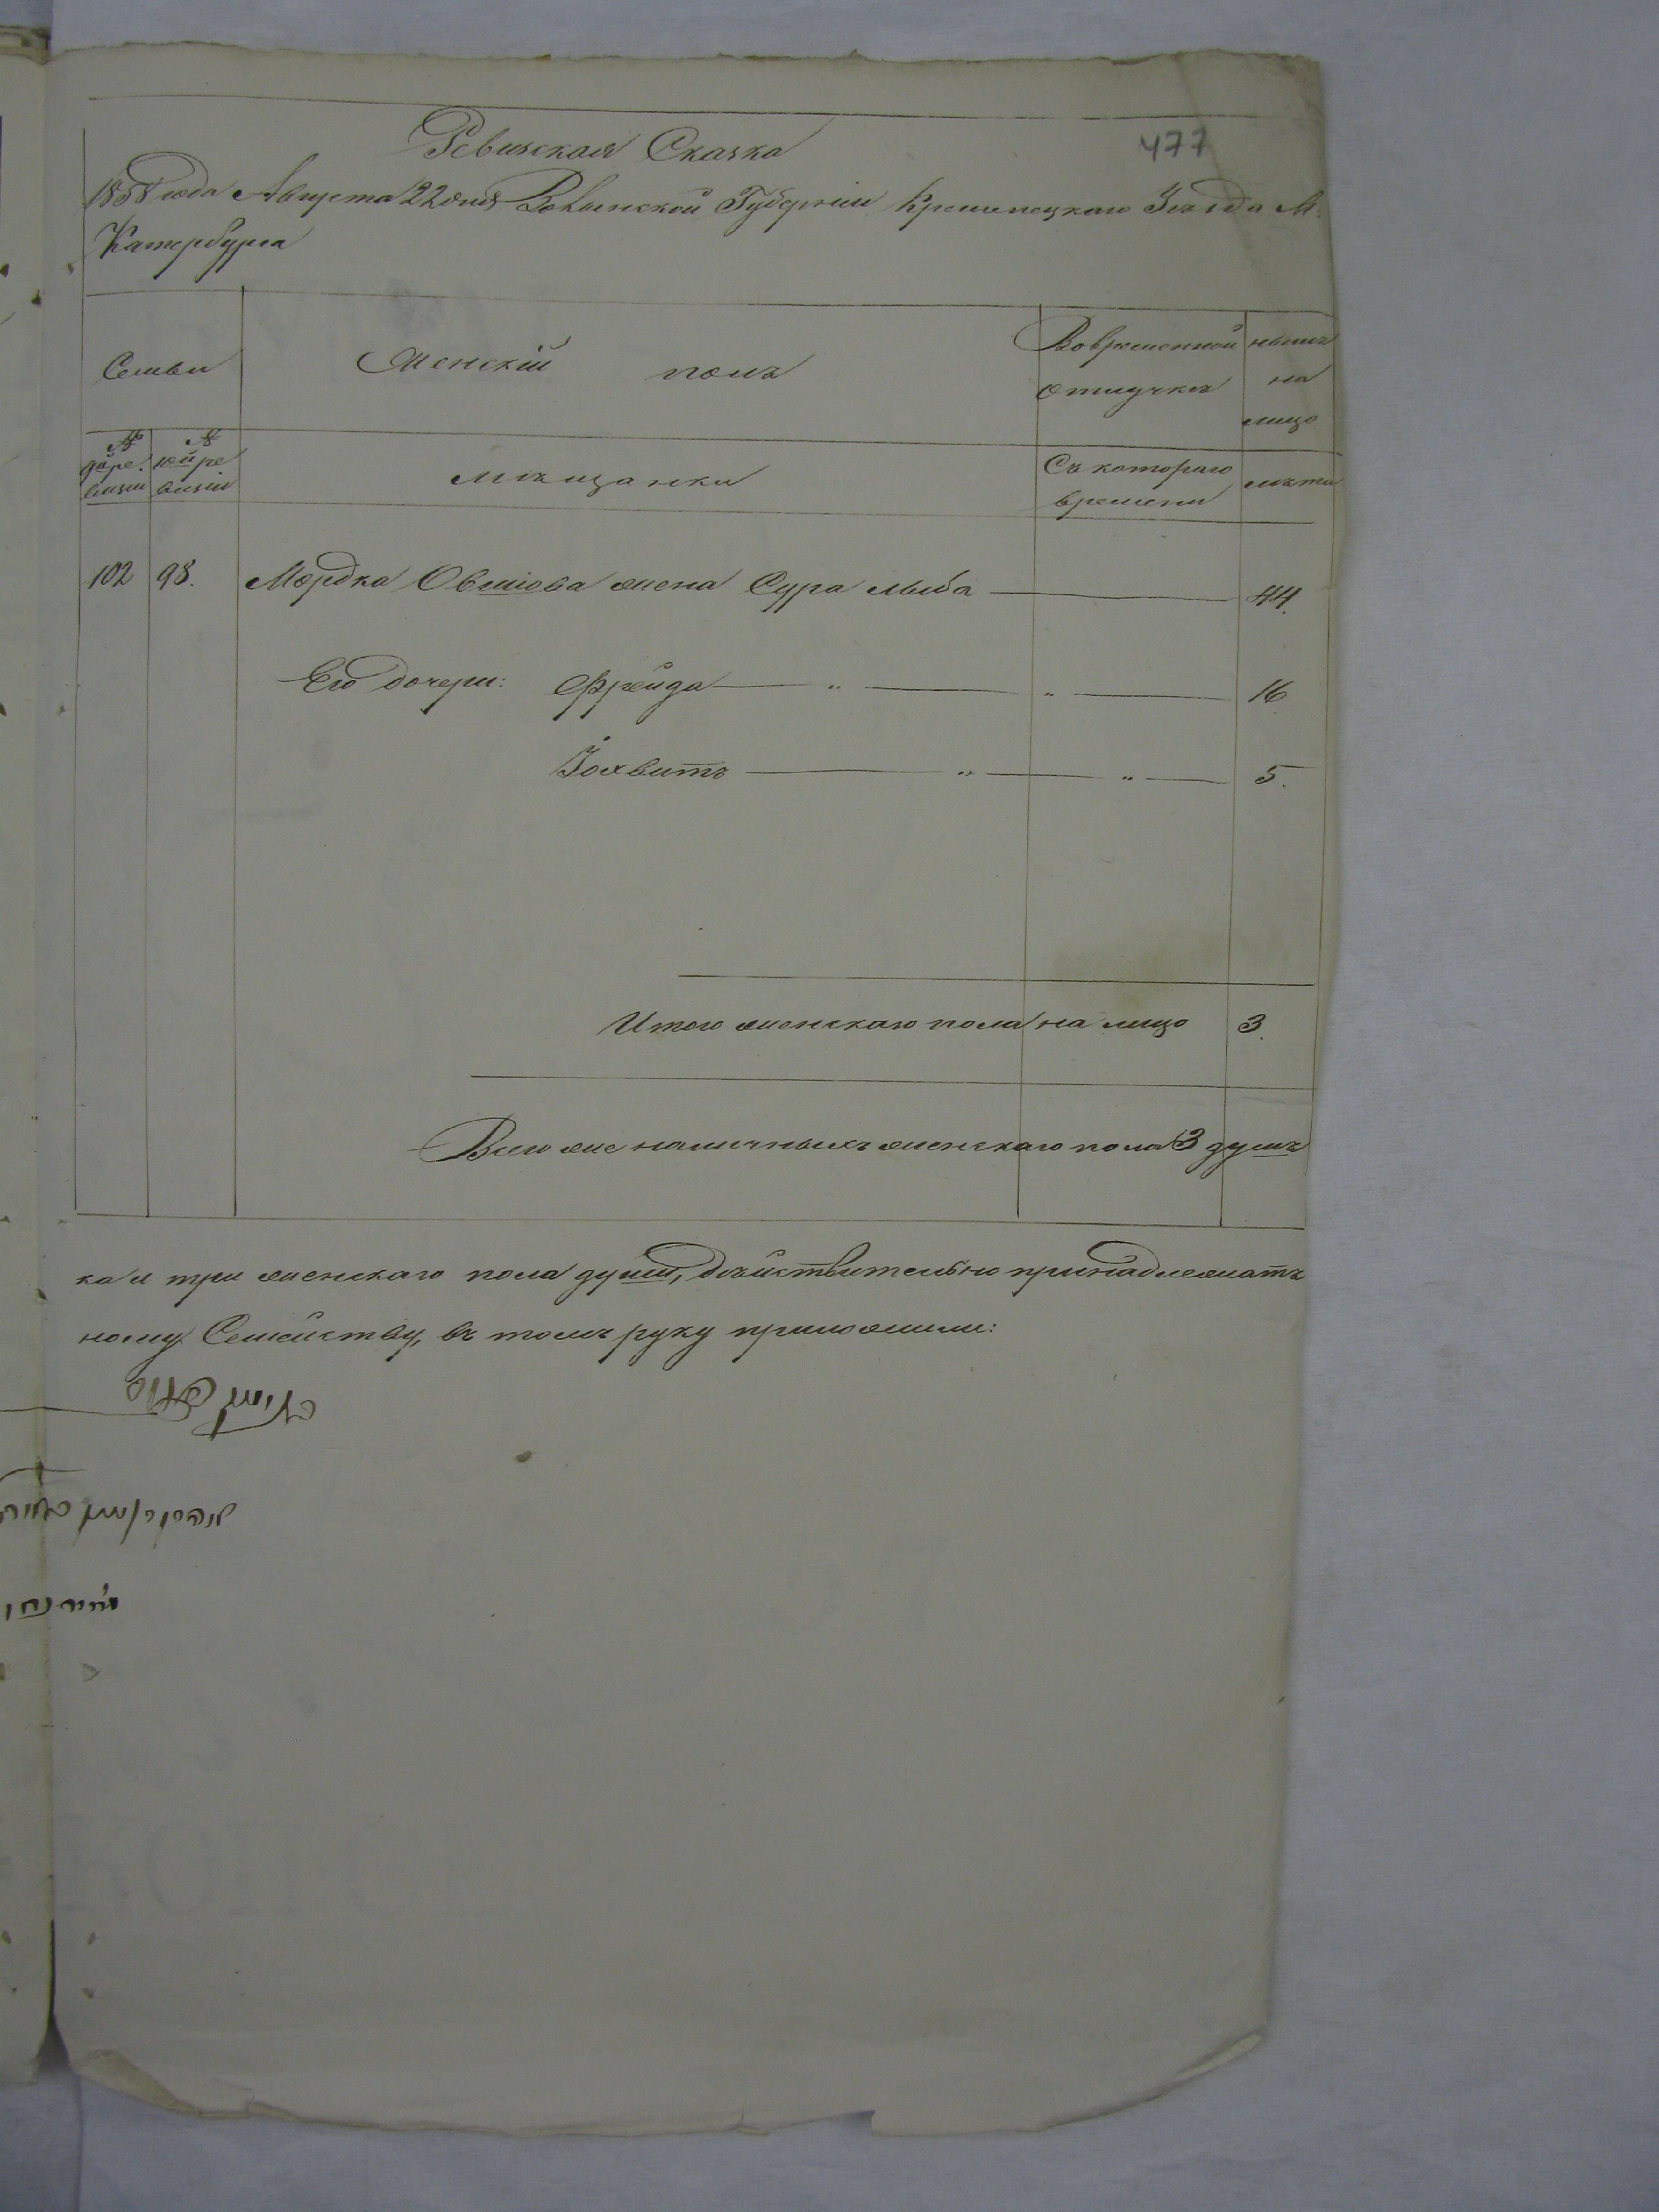 Ревизская Сказка
477
1858 года Августа 22 дня Волынской Губерніи Кременецкаго Уѣзда М.
Катербурга
Семьи
Женскій полъ
Во временной отлучкѣ
нынѣ на лицо
№ 9й ре визіи
№ 10й ре визіи
мѣщанки
Съ котораго времени
лѣта
102 98. Мордка Овшіова жена Сура Лыба 44.
Его дочери: Фрейда — " — " — 16
Іохвитъ — " — " — 5.
Итого женскаго пола на лицо 3.
Всего же наличныхъ женскаго пола 3 душъ
ка и три женскаго пола души, дѣйствительно принадлежатъ
ному Семейству, въ томъ руку приложили: